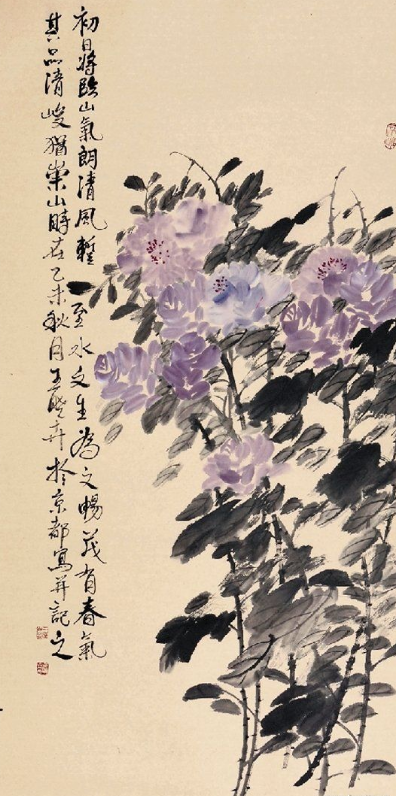 初日将臨山氣朗清風暫一至水文生為之暢茂有春氣
其品清峻猶崇山時在乙未秋月王曉卉於京都寫并記之